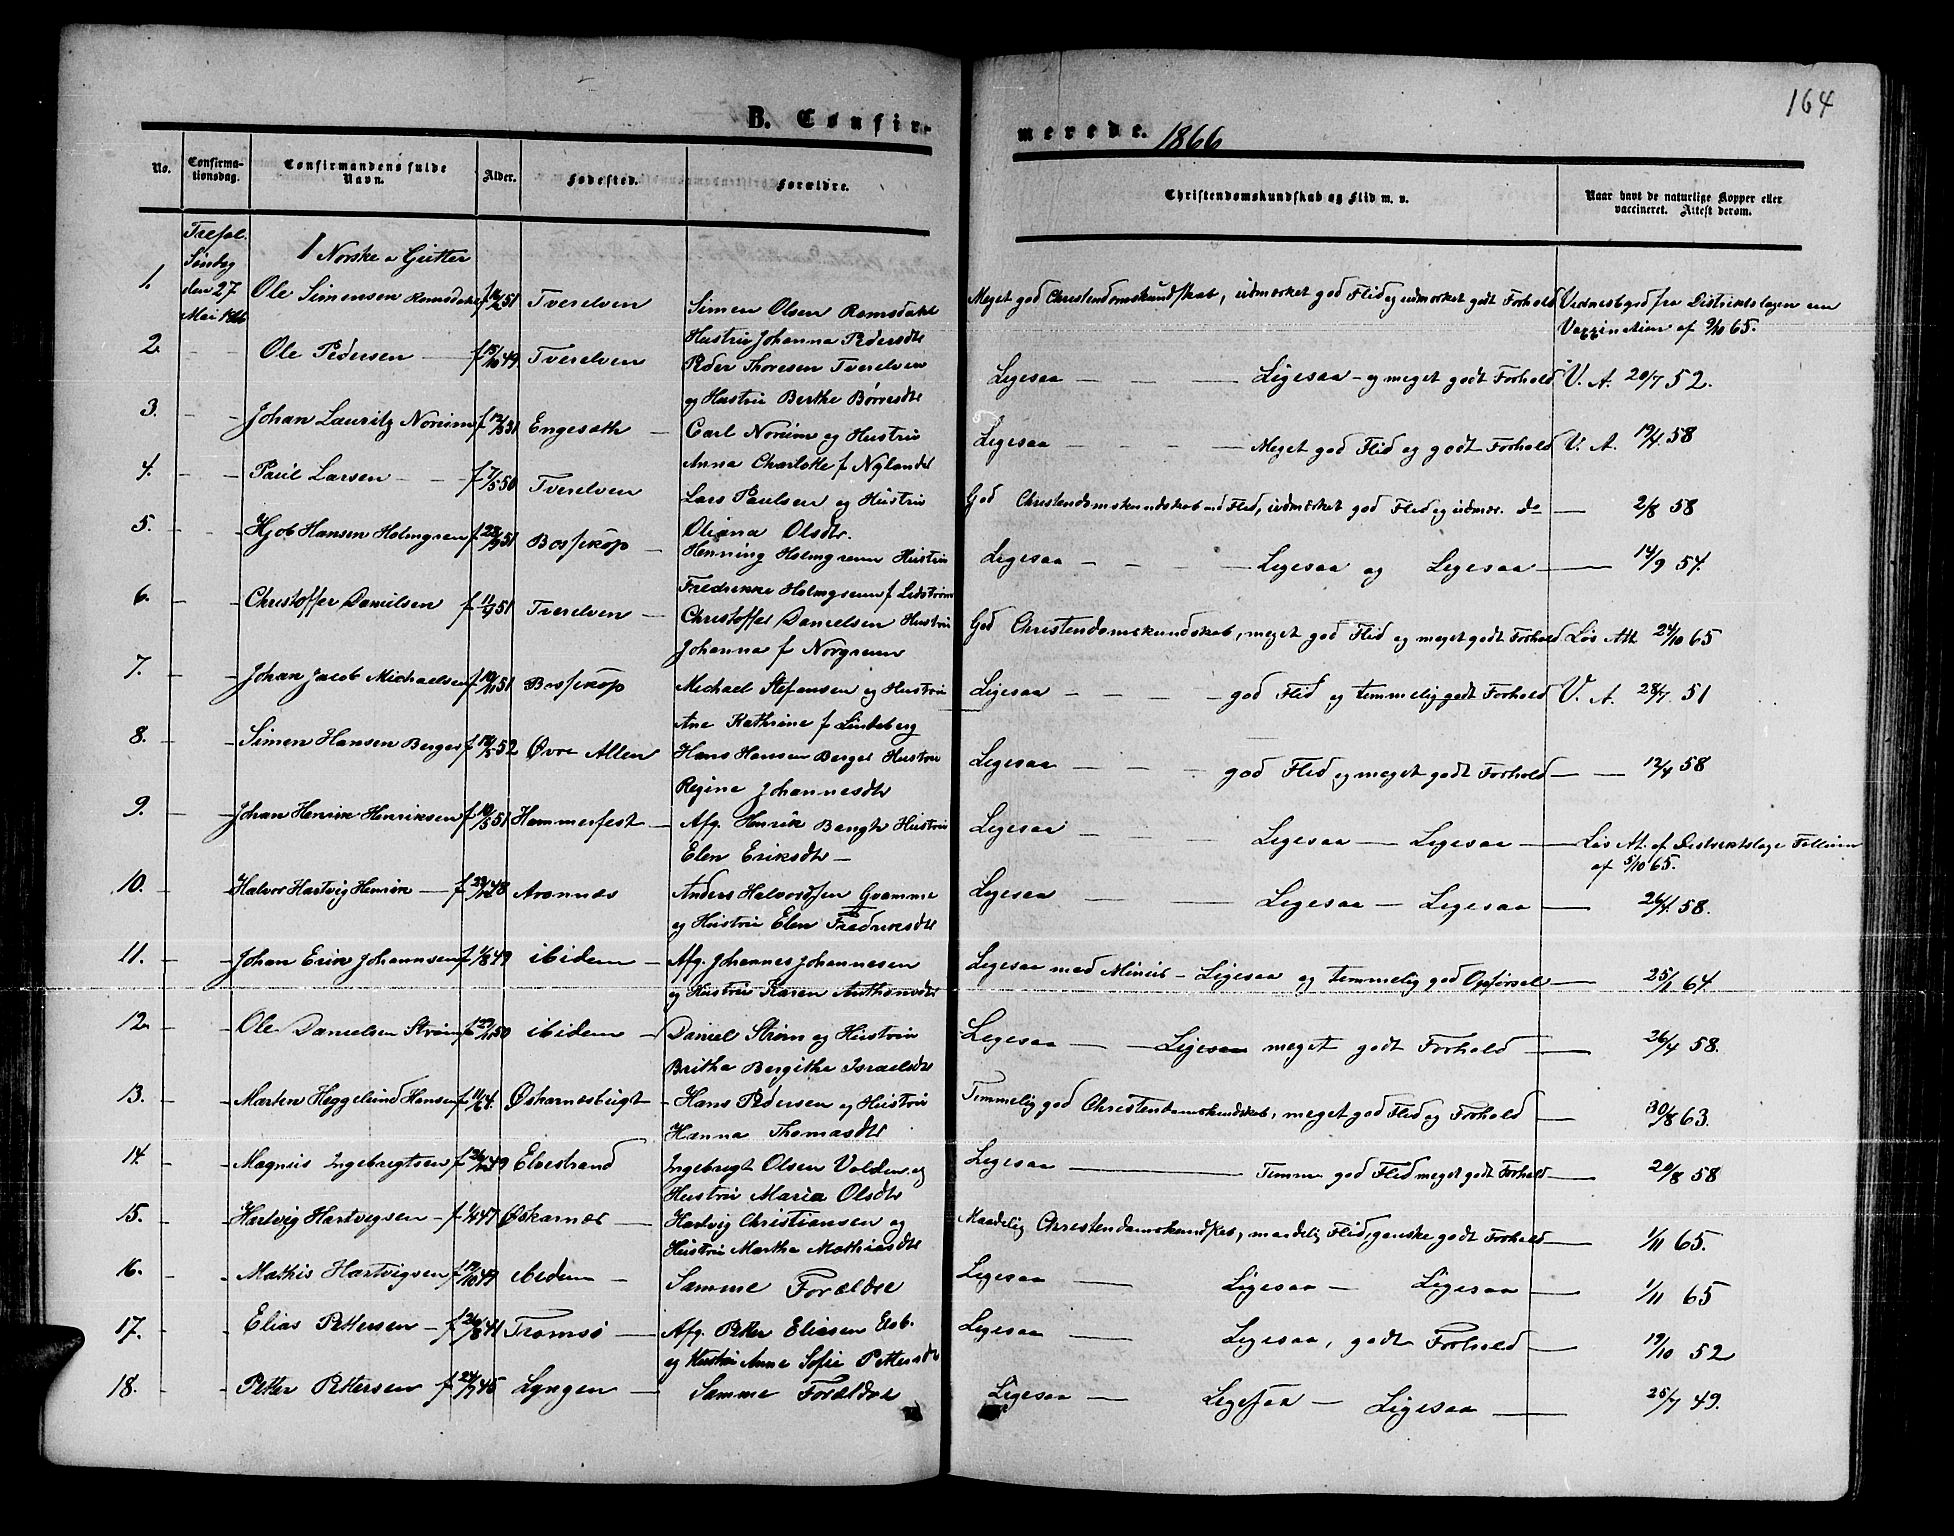 164
B. Confir-
merede. 1866
No.
Confirma-
tionsdag.
Confirmandens fulde
Navn.
Alder.
Fødested.
Forældre.
Christendomskundskab og Flid m. v.
Naar havt de naturlige Kopper eller
vaccineret. Attest derom.
Trefol.
Søndag
den 27
Mai 1866
1 Norske a Gutter
1. Ole Simensen Romsdahl f 51 Tverelven Simen Olsen Romsdahl
Hustru Johanna Pedersdtr
Meget god Christendomskundskab, udmærket god Flid og udmærket godt Forhold Vidnesbyrd fra Distriktslægen om
Vaxzination af 9/10 65.
2. - - Ole Pedersen f 15/10 49 Tverelven Peder Thoresen Tverelven
og Hustru Berthe Børresdtr
Ligesaa — — — Ligesaa - og meget godt Forhold V. A. 20/7 52.
3. - - Johan Lauritz Norum f 51 Engesæth — Carl Norum og Hustru
Anna Charlotte f Nylander
Ligesaa — — — Meget god Flid og godt Forhold V. A. 19/4 58
4. - - Paul Larsen - - f 7/5 50 Tverelven Lars Paulsen og Hustru
Oliana Olsdtr.
God Christendomskundskab Flid, udmærket god Flid og udmær. do — 2/8 58
5. - - Hjob Hansen Holmgren f 51 Bossekop — Henning Holmgreen Hustru
Fredrikke Holmgreen f Lidstrøm
Ligesaa — — — Ligesaa og Ligesaa — 14/9 54.
6. - - Christoffer Danielsen f 11/9 51 Tverelven — Christoffer Danielsen Hustru
Johanna f Norgreen
God Christendomskundskab, meget god Flid og meget godt Forhold Løs Att. 24/10 65
7. - - Johan Jacob Michaelsen f 51 Bossekop Michael Stefensen og Hustru
Ane Kathrine f Lindeberg
Ligesaa — — — god Flid og temmelig godt Forhold V. A. 28/7 51
8. - - Simen Hansen Berger f 52 Øvre Alten Hans Hansen Berger Hustru
Regine Johannesdtr
Ligesaa — — — god Flid og meget godt Forhold — — 12/4 58
9. - - Johan Henrik Henriksen f 10/5 51 Hammerfest — Afg. Henrik Bangtr Hustru
Elen Eriksdtr —
Ligesaa — — Ligesaa — Ligesaa — Løs At. af Distriktslæge
af 5/10 65.
10. - - Halvor Hartvig Henrik — f 48 Aronnæs Anders Halvordsen Gvamme
og Hustru Elen Fredriksdtr
Ligesaa — — Ligesaa — Ligesaa — 26/4 58.
11. - - Johan Erik Johannsen f 1/8 49 ibidem — Afg. Johannes Johannesen
og Hustru Karen Anthonsdtr
Ligesaa med Minus - Ligesaa og temmelig god Opførsel — 25/1 64
12. - - Ole Danielsen Strøm f 50 ibidem — Daniel Strøm og Hustru
Britha Bergitha Israelsdtr
Ligesaa — — Ligesaa meget godt Forhold — 26/4 58.
13. - - Morten Heggelund Hansen f Øskarnæsbugt - Hans Pedersen og Hustru
Hanna Thomasdtr
Temmelig god Christendomskundskab, meget god Flid og Forhold — 30/8 63.
14. - - Magnus Ingebrigtsen f 49 Elvestrand Ingebrigt Olsen Volden og
Hustru Maria Olsdtr
Ligesaa — Temme god Flid meget godt Forhold — 20/8 58
15. - - Hartvig Hartvigsen - f 47 Øskarnæs — Hartvig Christiansen og
Hustru Martha Mathiasdtr
Maadelig Christendomskundskab, maadelig Flid, ganske godt Forhold — 1/11 65.
16. - - Mathis Hartvigsen f 49 ibidem — Samme Forældre
Ligesaa — Ligesaa — Ligesaa — 1/11 65
17. - Elias Pettersen — f 41 Tromsø — Afg. Petter Eliasen
og Hustru Anne Sofie Pettersdtr
Ligesaa — Ligesaa, godt Forhold — 19/10 52
18. - - Petter Pettersen f 45 Lyngen — Samme Forældre
Ligesaa — Ligesaa — Ligesaa — 25/7 49.